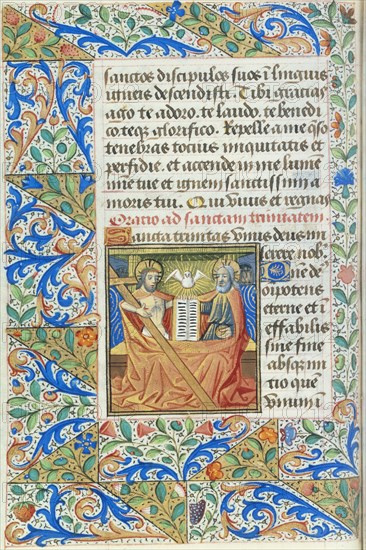 sanctos discipulos suos ī linguis
igneis descendisti. Tibi gracias
ago te adoro. te laudo. te benedi
co teqȝ glorifico. Repelle a me q̄so
tenebras tocius iniquitatis et
perfidie. et accende in me lumē
mīe tue et ignem sanctissimi a
moris tui. Qui viuis et regnas
Oratio ad sanctam trinitatem
Sancta trinitas vnus deus mi
serere nob̄.
ne de
oīpotens
eterne et ī
effabilis
sine fine
absqȝ ini
tio quē
vnum ī